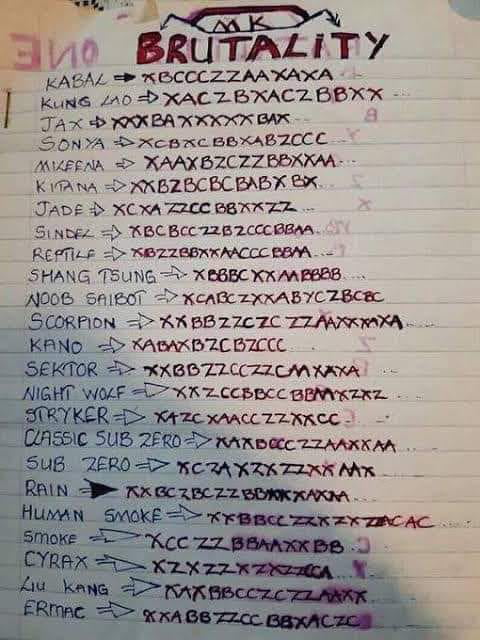 MK
BRUTALITY
KABAL → XBCCCZZAAXAXA
KUNG LAO ⇒ XACZBXACZBBXX ...
JAX ⇒ XXXBAXXXXXBAX...
SONYA ⇒ XCBXCBBXABZCCC ...
MILEENA ⇒ XAAXBZCZZBBXXAA...
KITANA ⇒ XXBZBCBCBABXBX...
JADE ⇒ XCXAZZCCBBXXZZ ...
SINDEL ⇒ XBCBCCZZBZCCCBBAA...
REPTILE ⇒ XBZZBBXXAACCCBBAA ...
SHANG TSUNG ⇒ XBBBCXXAABBBB....
NOOB SAIBOT ⇒ XCABCZXXABYCZBCBC
SCORPION ⇒ XXBBZZCZCZZAAXXXAXA...
KANO ⇒ XABAXBZCBZCCC
SEKTOR ⇒ XXBBZZCCZZCAAXAXA
NIGHT WOLF ⇒ XXZCCBBCCBBAAXZXZ
STRYKER ⇒ XAZCXAACCZZXXCC
CLASSIC SUB ZERO ⇒ XAXBCCCZZAAXXAA
SUB ZERO ⇒ XCZAXZXZZXXAAX
RAIN ➤ XXBCZBCZZBBXXXAXAA
HUMAN SMOKE ⇒ XXBBCCZZXZXZZACAC
SMOKE ⇒ XCCZZBBAAXXBB
CYRAX ⇒ XZXZZXZXZZCCA
LIU KANG ⇒ XAXBBCCZCZZAAXX
ERMAC ⇒ XXABBZZCCBBXACZC